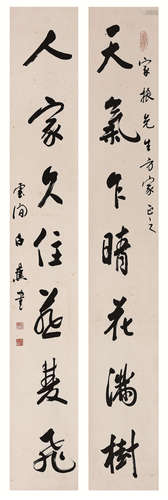 天氣乍晴花滿樹
家振先生方家正之
人家久住燕雙飛
雲間白蕉書